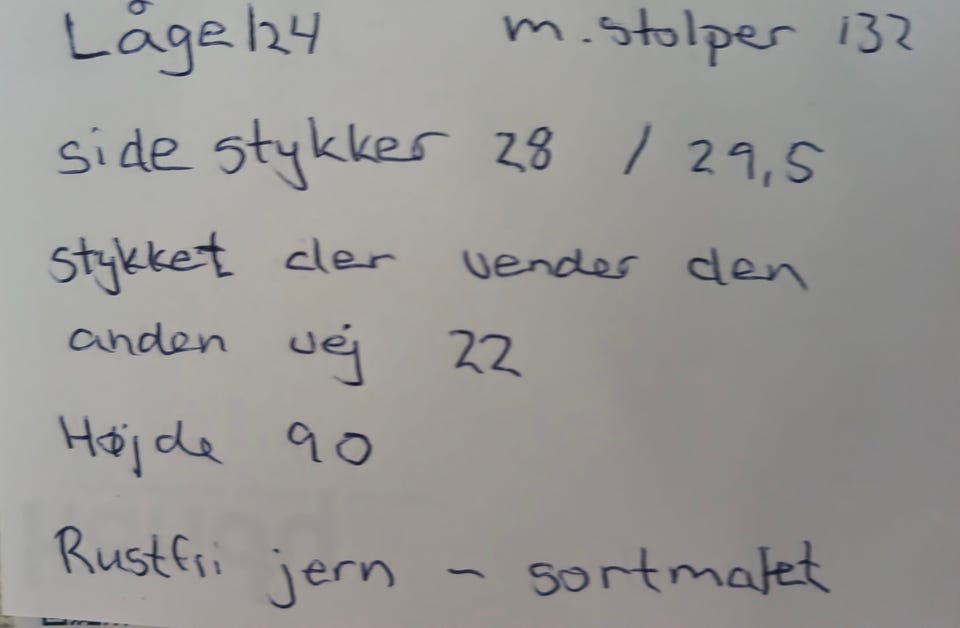 Låge 124 m. stolper 132
side stykker 28 / 29,5
stykket der vender den
anden vej 22
Højde 90
Rustfri jern - sortmalet